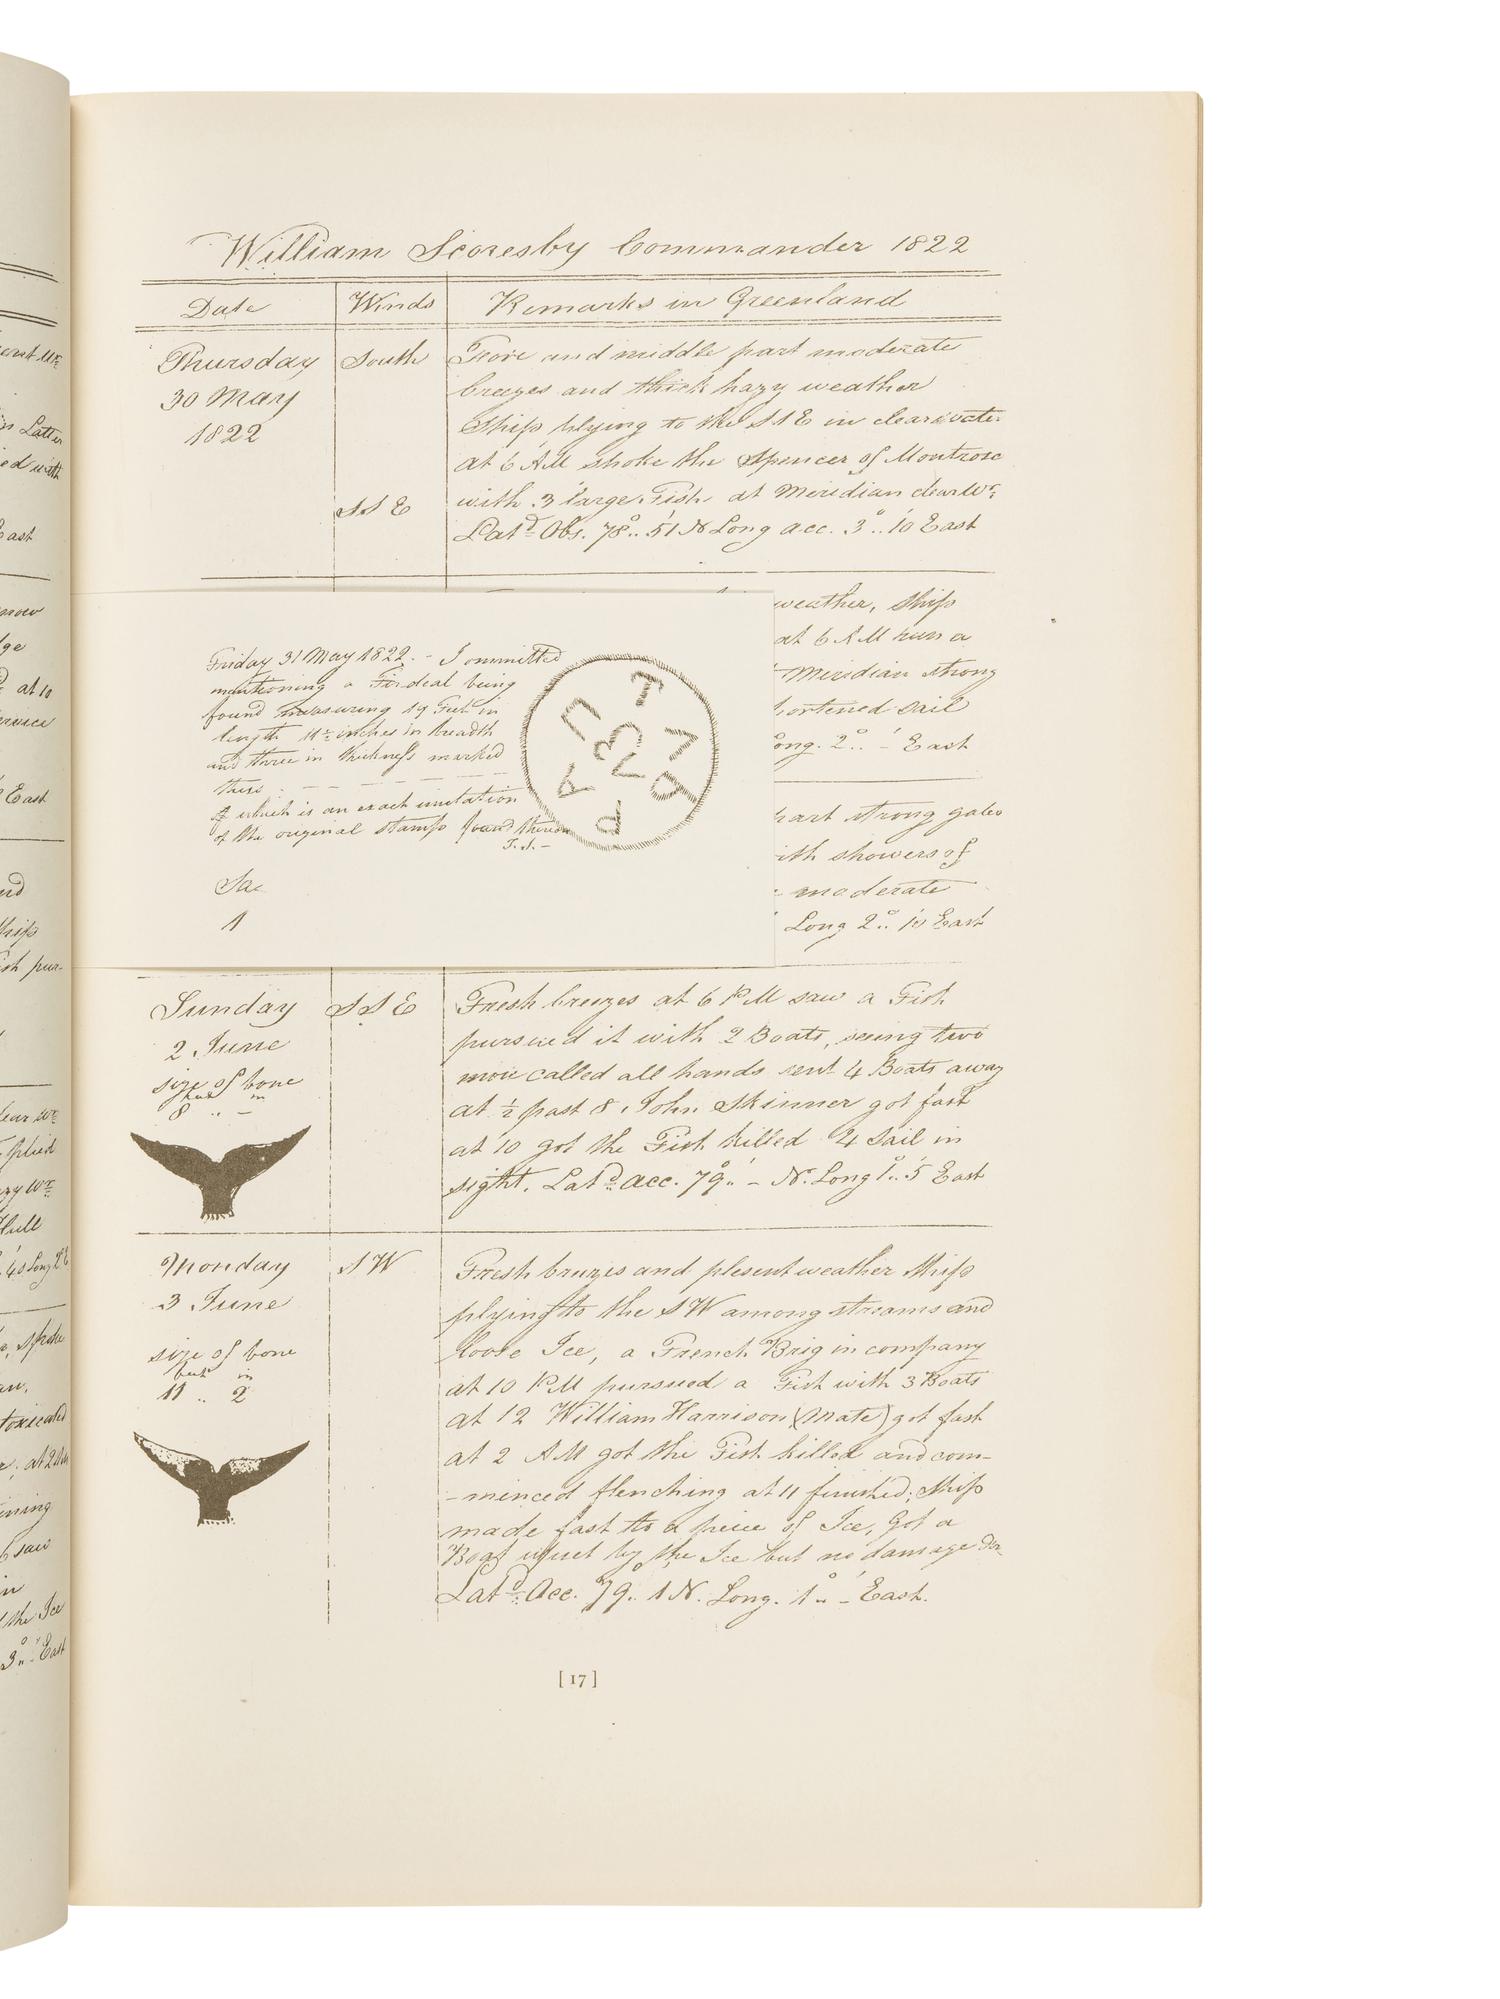 William Scoresby Commander 1822
Date Winds Remarks in Greenland
Thursday South Fore and middle part moderate
30 May breezes and thick hazy weather
1822 Ship plying to the SSE in clear water
at 6 AM spoke the Spencer of Montrose
SSE with 3 large Fish at Meridian clear Wr.
Latd. Obs. 78°..51' N Long acc. 3°..10' East
weather, Ship
at 6 AM run a
Meridian strong
hortened sail
ong. 2°.. -' East
part strong gales
ith showers of
moderate
Long 2°.. 10' East
Friday 31 May 1822. - I ommitted
mentioning a Fir deal being
found measuring 19 Feet in
length 11½ inches in breadth
and three in thickness marked
thus
of which is an exact imitation
of the original stamp found thereon
T.S.-
Sa
1
Sunday SSE Fresh breezes at 6 PM saw a Fish
2 June pursued it with 2 Boats, seeing two
size of bone more called all hands sent 4 Boats away
feet in
8 .. - at ½ past 8 John Skinner got fast
at 10 got the Fish killed 4 Sail in
sight. Latd. acc. 79°.. -' N. Long 1°.. 5' East
Monday SW Fresh brezes and plesent weather Ship
3 June plying to the SW among streams and
size of bone loose Ice, a French Brig in company
feet in
11 .. 2 at 10 PM pursued a Fish with 3 Boats
at 12 William Harrison (Mate) got fast
at 2 AM got the Fish killed and com-
-minced flenching at 11 finished; Ship
made fast to a peice of Ice, Got a
Boat upset by the Ice but no damage don
Latd. Acc. 79°.. 1' N. Long. 1°.. -' East.
[17]